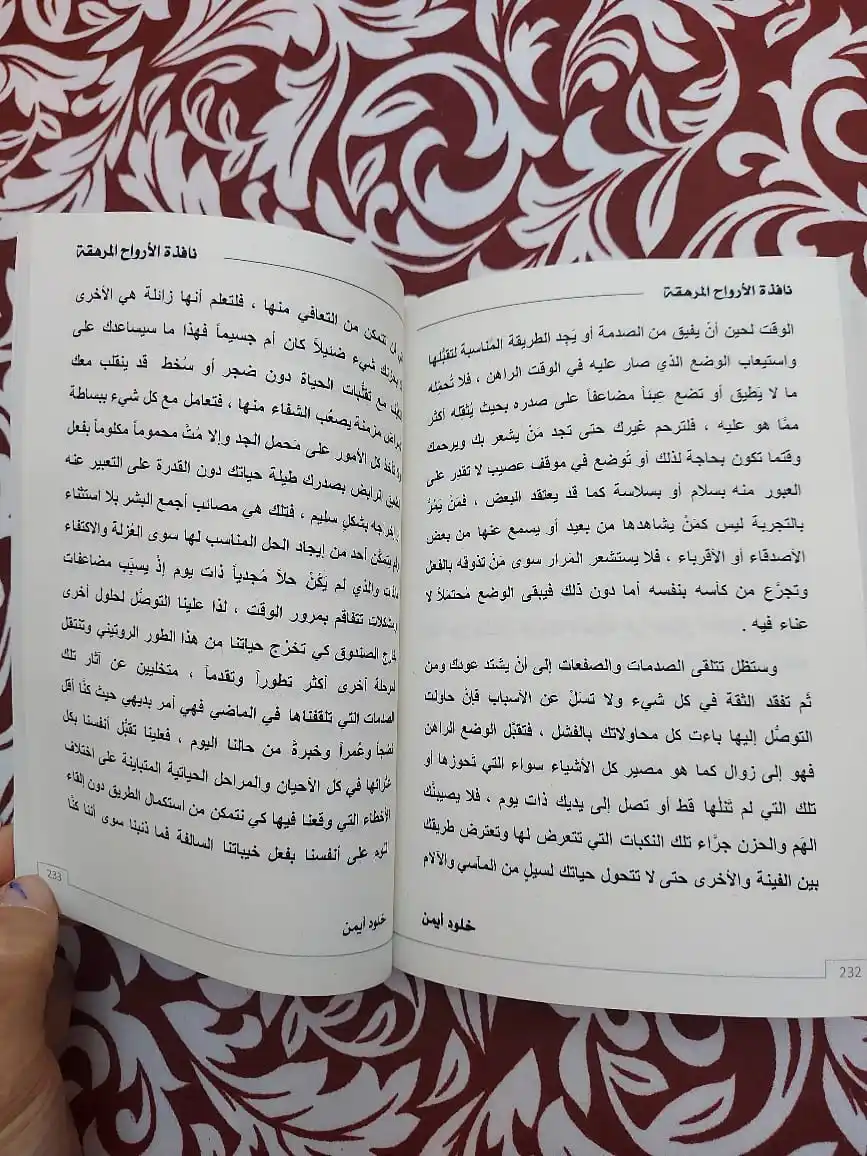 نافذة الأرواح المرهقة
الوقت لحين أنْ يفيق من الصدمة أو يَجِد الطريقة المُناسبة لتقبُّلها
واستيعاب الوضع الذي صار عليه في الوقت الراهن ، فلا تُحمِّله
ما لا يَطيق أو تضع عِبئاً مضاعفاً على صدره بحيث يُثقله أكثر
ممَّا هو عليه ، فلترحم غيرك حتى تجد مَنْ يشعر بك ويرحمك
وقتما تكون بحاجة لذلك أو تُوضع في موقف عصيب لا تقدر على
العبور منه بسلام أو بسلاسة كما قد يعتقد البعض ، فمَنْ يَمُرُّ
بالتجربة ليس كمَنْ يشاهدها من بعيد أو يسمع عنها من بعض
الأصدقاء أو الأقرباء ، فلا يستشعر المَرار سوى مَنْ تذوقه بالفعل
وتجرَّع من كأسه بنفسه أما دون ذلك فيبقى الوضع مُحتملاً لا
عناء فيه .
وستظل تتلقى الصدمات والصفعات إلى أنْ يشتد عودك ومن
ثَم تفقد الثقة في كل شيء ولا تَسَلْ عن الأسباب فإنْ حاولت
التوصُّل إليها باءت كل محاولاتك بالفشل ، فتقبَّل الوضع الراهن
فهو إلى زوال كما هو مصير كل الأشياء سواء التي تَحوزها أو
تلك التي لم تَنَلْها قط أو تصل إلى يديك ذات يوم ، فلا يصيبنَّك
الهَم والحزن جرَّاء تلك النكبات التي تتعرض لها وتعترض طريقك
بين الفينة والأخرى حتى لا تتحول حياتك لسيلٍ من المآسي والآلام
خلود أيمن
232
نافذة الأرواح المرهقة
لن تتمكن من التعافي منها ، فلتعلم أنها زائلة هي الأخرى
يحزنك شيء ضئيلاً كان أم جسيماً فهذا ما سيساعدك على
مع تقلُّبات الحياة دون ضجر أو سُخط قد ينقلب معك
مزمنة يصعُب الشفاء منها ، فتعامل مع كل شيء ببساطة
تأخذ كل الأمور على مَحمل الجد وإلا مُتَّ محموماً مكلوماً بفعل
الرابض بصدرك طيلة حياتك دون القدرة على التعبير عنه
بشكلٍ سليم ، فتلك هي مصائب أجمع البشر بلا استثناء
يتمكن أحد من إيجاد الحل المناسب لها سوى العُزلة والاكتفاء
والذي لم يَكُنْ حلاً مُجدياً ذات يوم إذْ يسبِّب مضاعفات
ومشكلات تتفاقم بمرور الوقت ، لذا علينا التوصُّل لحلول أخرى
خارج الصندوق كي تَخرُج حياتنا من هذا الطور الروتيني وتنتقل
لمرحلة أخرى أكثر تطوراً وتقدماً ، متخليين عن آثار تلك
الصدمات التي تلقفناها في الماضي فهي أمر بديهي حيث كنَّا أقل
نُضجاً وعُمراً وخبرةً من حالنا اليوم ، فعلينا تقبُّل أنفسنا بكل
عثراتها في كل الأحيان والمراحل الحياتية المتباينة على اختلاف
الأخطاء التي وقعنا فيها كي نتمكن من استكمال الطريق دون إلقاء
اللوم على أنفسنا بفعل خيباتنا السالفة فما ذنبنا سوى أننا كنَّا
خلود أيمن
233